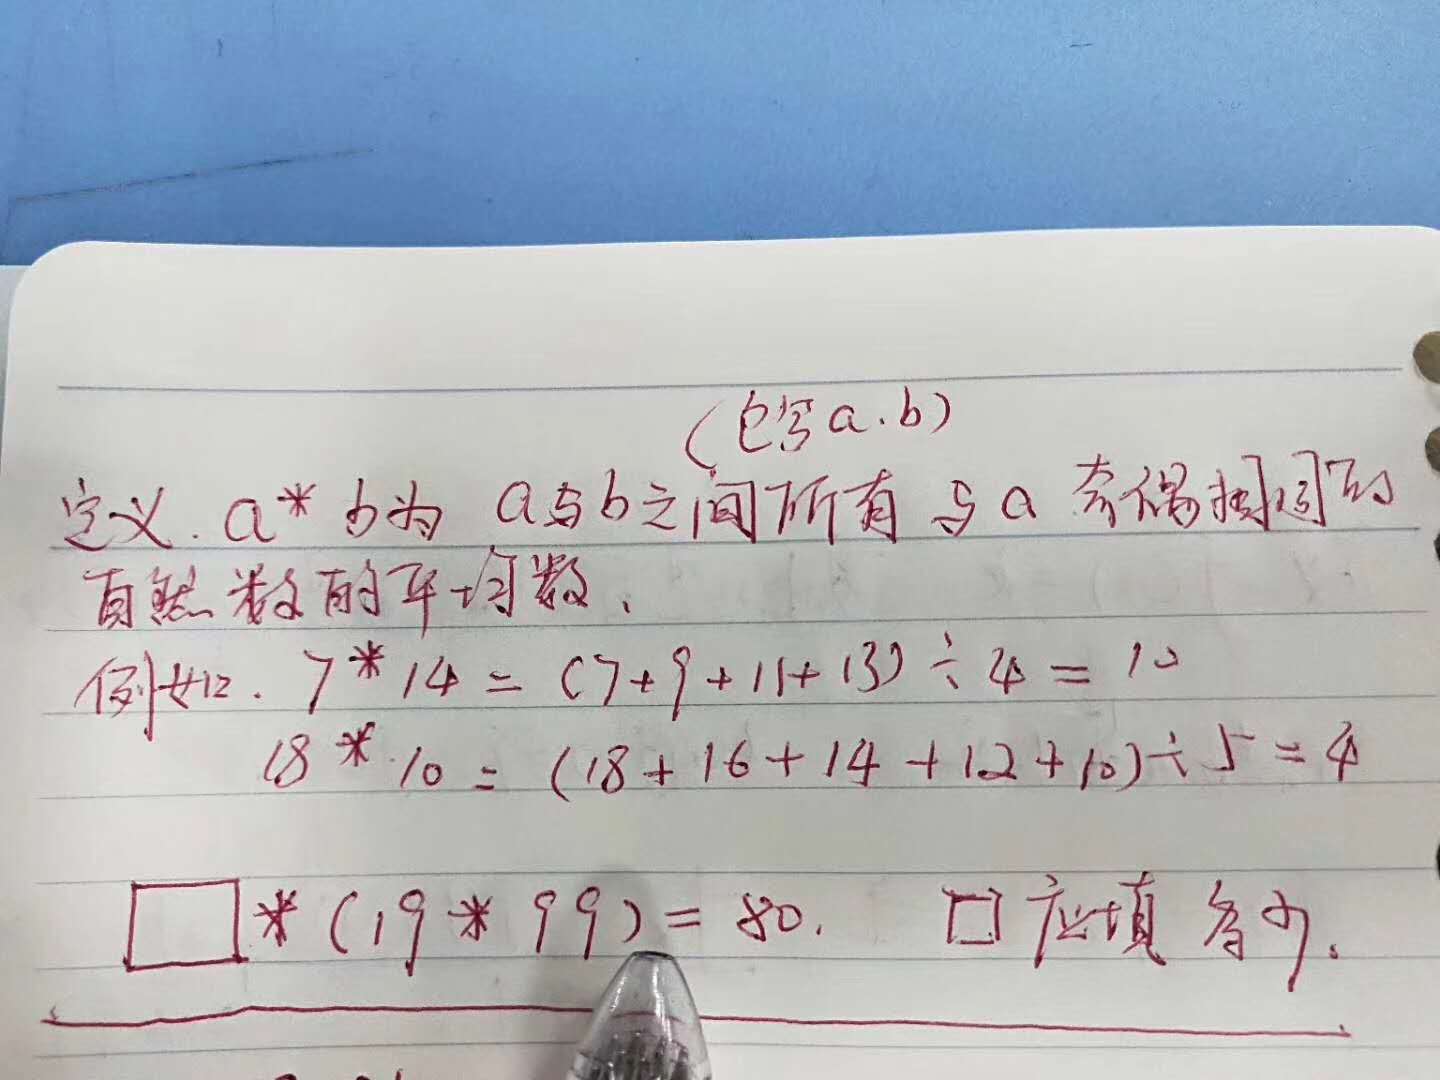 (包含a.b)
定义.a*b为 a与b之间所有与a 奇偶相同的
自然数的平均数.
例如. 7*14=(7+9+11+13)÷4=10
18*10=(18+16+14+12+10)÷5=4
□*(19*99)=80. □应填多少.